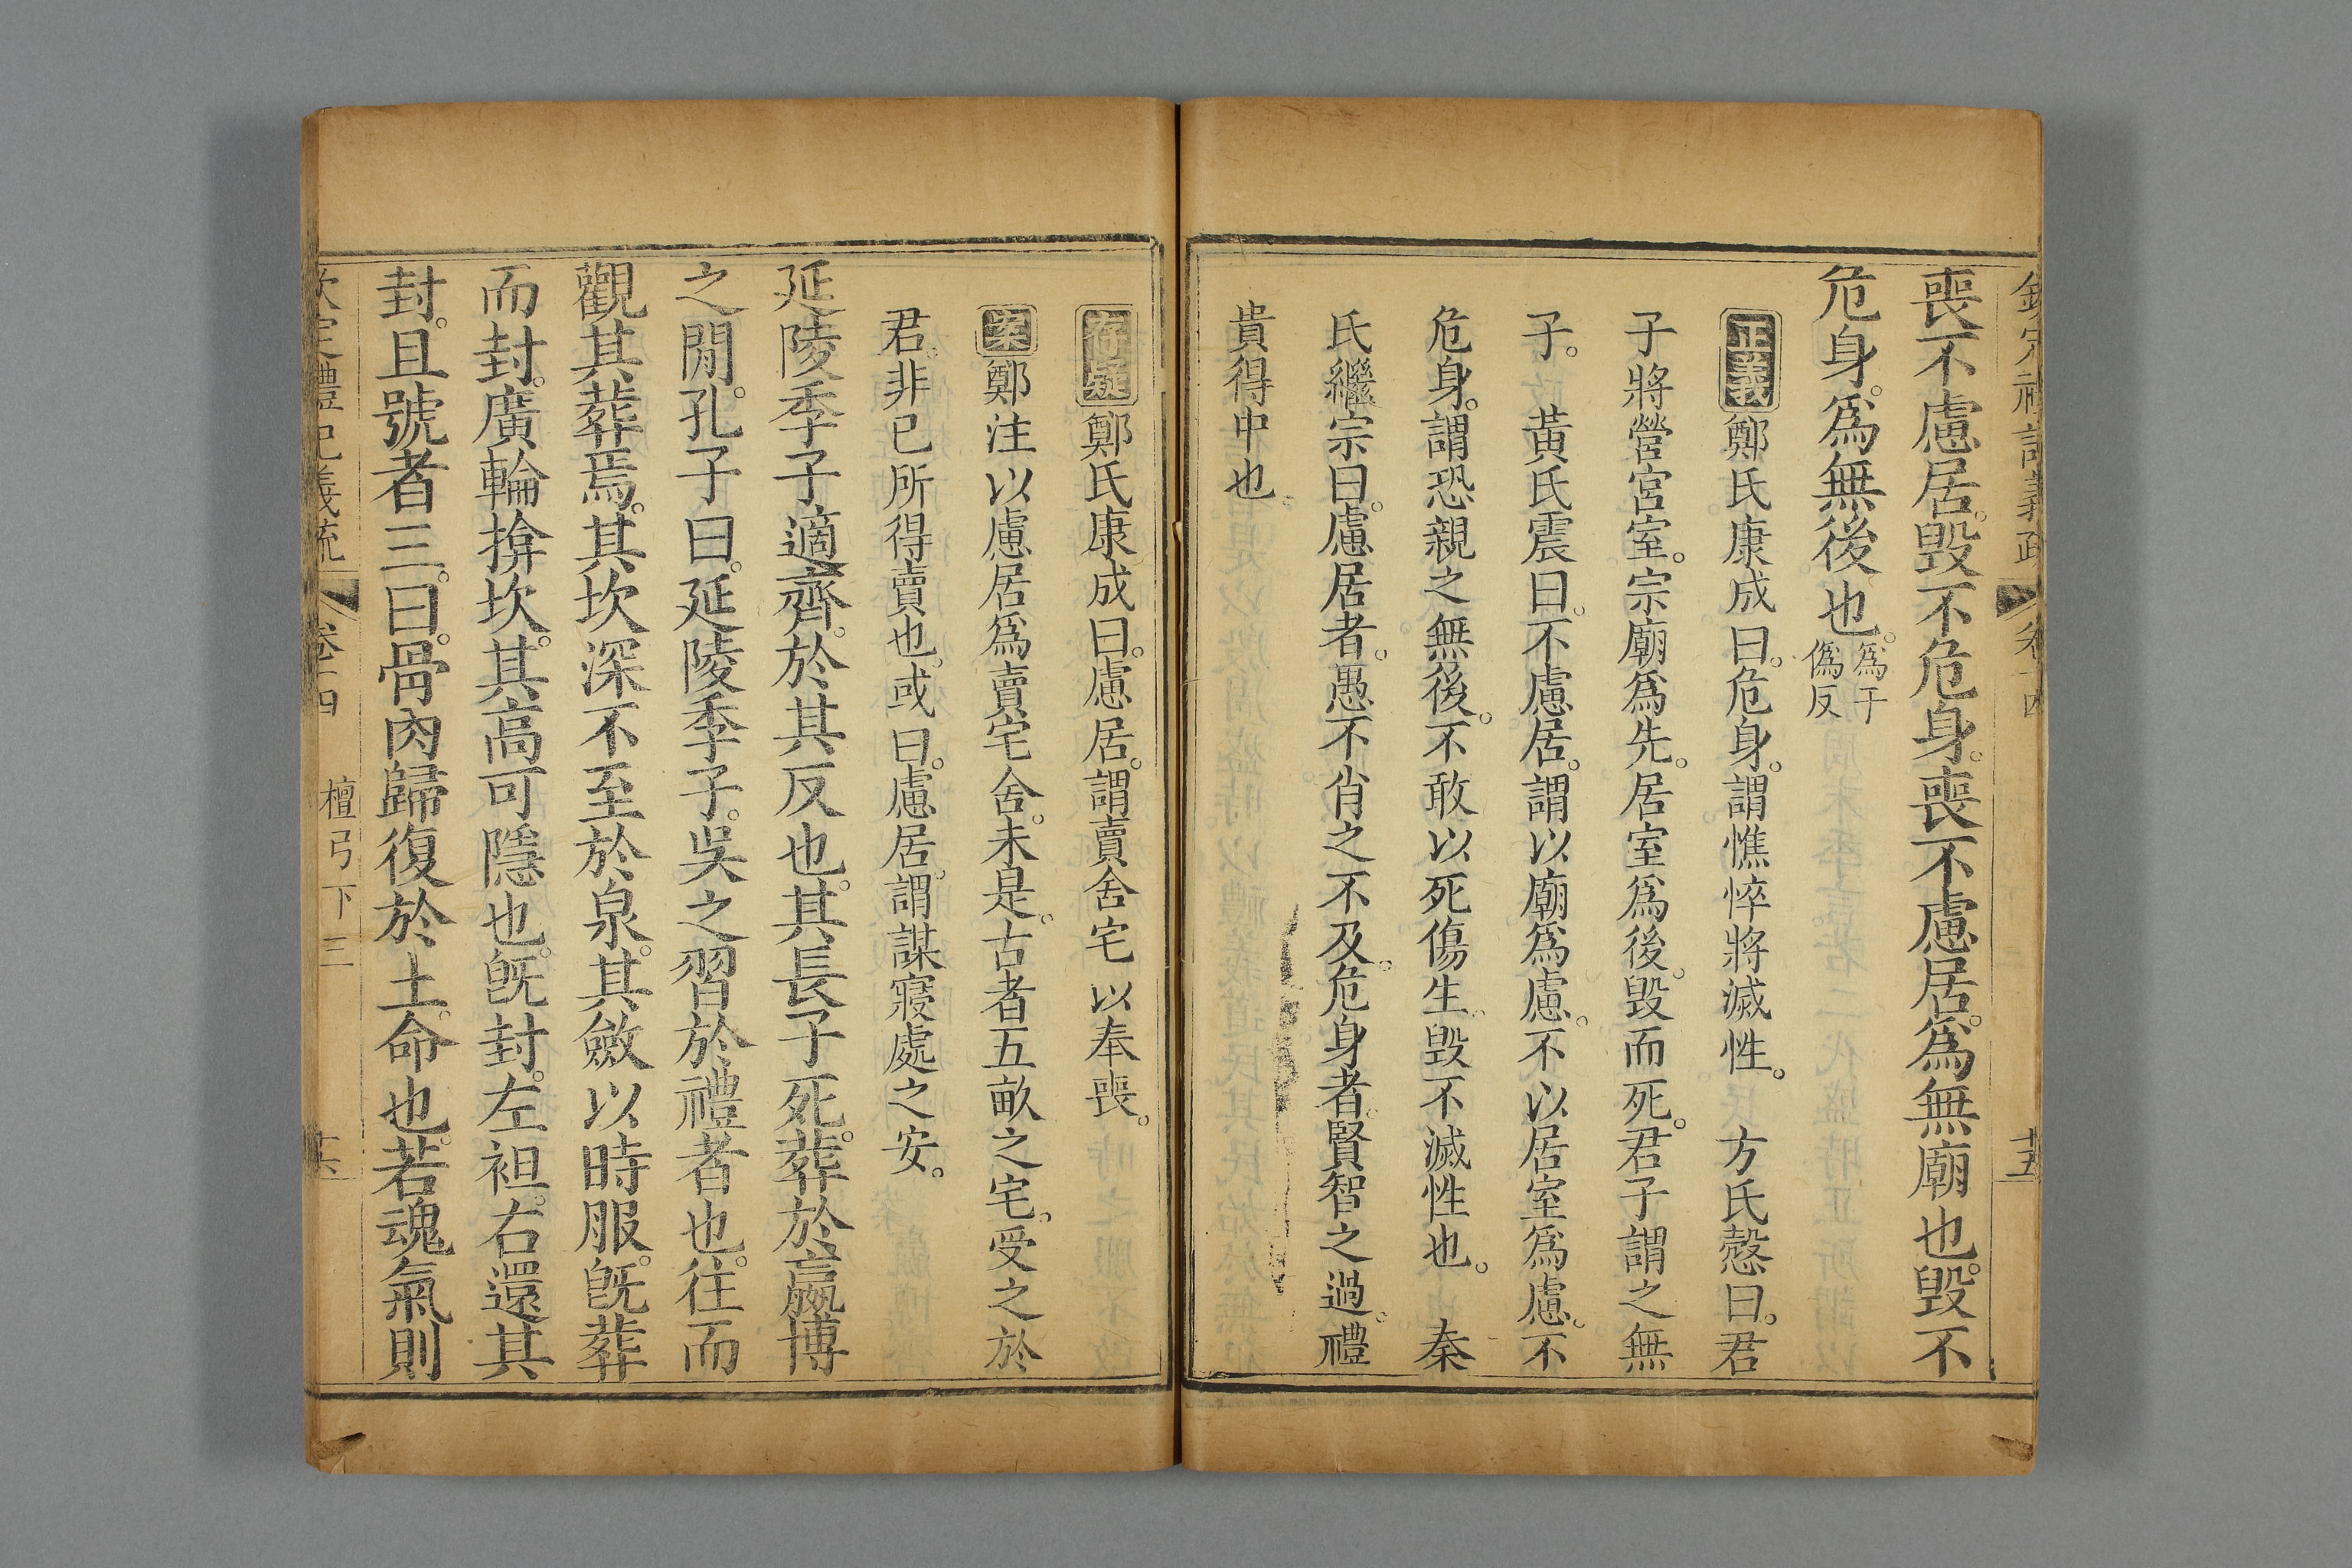 欽定禮記義疏 卷十四 十五
喪不慮居。毀不危身。喪不慮居。爲無廟也。毀不
危身。爲無後也。爲于偽反
正義鄭氏康成曰。危身。謂憔悴將滅性。 方氏慤曰。君
子將營宮室。宗廟爲先。居室爲後。毀而死。君子謂之無
子。 黃氏震曰。不慮居。謂以廟爲慮。不以居室爲慮。不
危身。謂恐親之無後。不敢以死傷生。毀不滅性也。 秦
氏繼宗曰。慮居者。愚不肖之不及。危身者。賢智之過。禮
貴得中也。
存疑鄭氏康成曰。慮居。謂賣舍宅以奉喪。
案鄭注以慮居爲賣宅舍。未是。古者五畝之宅。受之於
君。非已所得賣也。或曰。慮居。謂謀寢處之安。
延陵季子適齊。於其反也。其長子死。葬於嬴博
之閒。孔子曰。延陵季子。吳之習於禮者也。往而
觀其葬焉。其坎深不至於泉。其斂以時服。旣葬
而封。廣輪揜坎。其高可隱也。旣封。左袒。右還其
封。且號者三。曰。骨肉歸復於土。命也。若魂氣則
欽定禮記義疏 卷十四 檀弓下三 十六